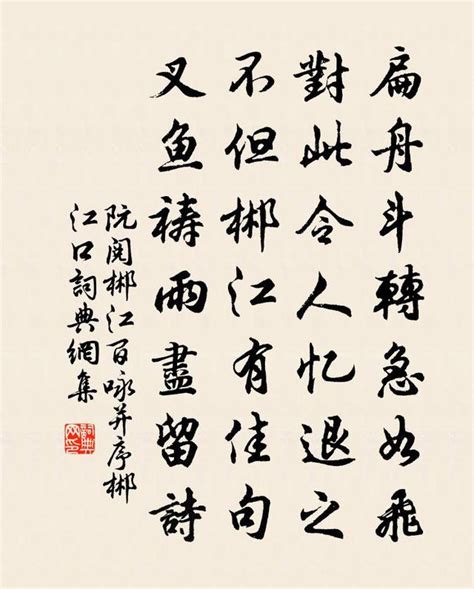 扁舟斗轉急如飛
對此令人忆退之
不但郴江有佳句
叉鱼祷雨盡留詩
阮阅郴江百咏并序郴
江口詞典網集